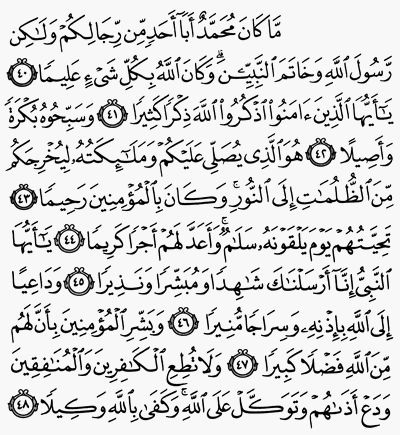 مَّا كَانَ مُحَمَّدٌ أَبَآ أَحَدٍ مِّن رِّجَالِكُمْ وَلَـٰكِن
رَّسُولَ اللَّهِ وَخَاتَمَ النَّبِيِّـۧنَ ۗ وَكَانَ اللَّهُ بِكُلِّ شَىْءٍ عَلِيمًا ٤٠
يَـٰٓأَيُّهَا الَّذِينَ ءَامَنُوا اذْكُرُوا اللَّهَ ذِكْرًا كَثِيرًا ٤١ وَسَبِّحُوهُ بُكْرَةً
وَأَصِيلًا ٤٢ هُوَ الَّذِى يُصَلِّى عَلَيْكُمْ وَمَلَـٰٓئِكَتُهُۥ لِيُخْرِجَكُم
مِّنَ الظُّلُمَـٰتِ إِلَى النُّورِ ۚ وَكَانَ بِالْمُؤْمِنِينَ رَحِيمًا ٤٣
تَحِيَّتُهُمْ يَوْمَ يَلْقَوْنَهُۥ سَلَـٰمٌ ۚ وَأَعَدَّ لَهُمْ أَجْرًا كَرِيمًا ٤٤ يَـٰٓأَيُّهَا
النَّبِىُّ إِنَّآ أَرْسَلْنَـٰكَ شَـٰهِدًا وَمُبَشِّرًا وَنَذِيرًا ٤٥ وَدَاعِيًا
إِلَى اللَّهِ بِإِذْنِهِۦ وَسِرَاجًا مُّنِيرًا ٤٦ وَبَشِّرِ الْمُؤْمِنِينَ بِأَنَّ لَهُم
مِّنَ اللَّهِ فَضْلًا كَبِيرًا ٤٧ وَلَا تُطِعِ الْكَـٰفِرِينَ وَالْمُنَـٰفِقِينَ
وَدَعْ أَذَىٰهُمْ وَتَوَكَّلْ عَلَى اللَّهِ ۚ وَكَفَىٰ بِاللَّهِ وَكِيلًا ٤٨